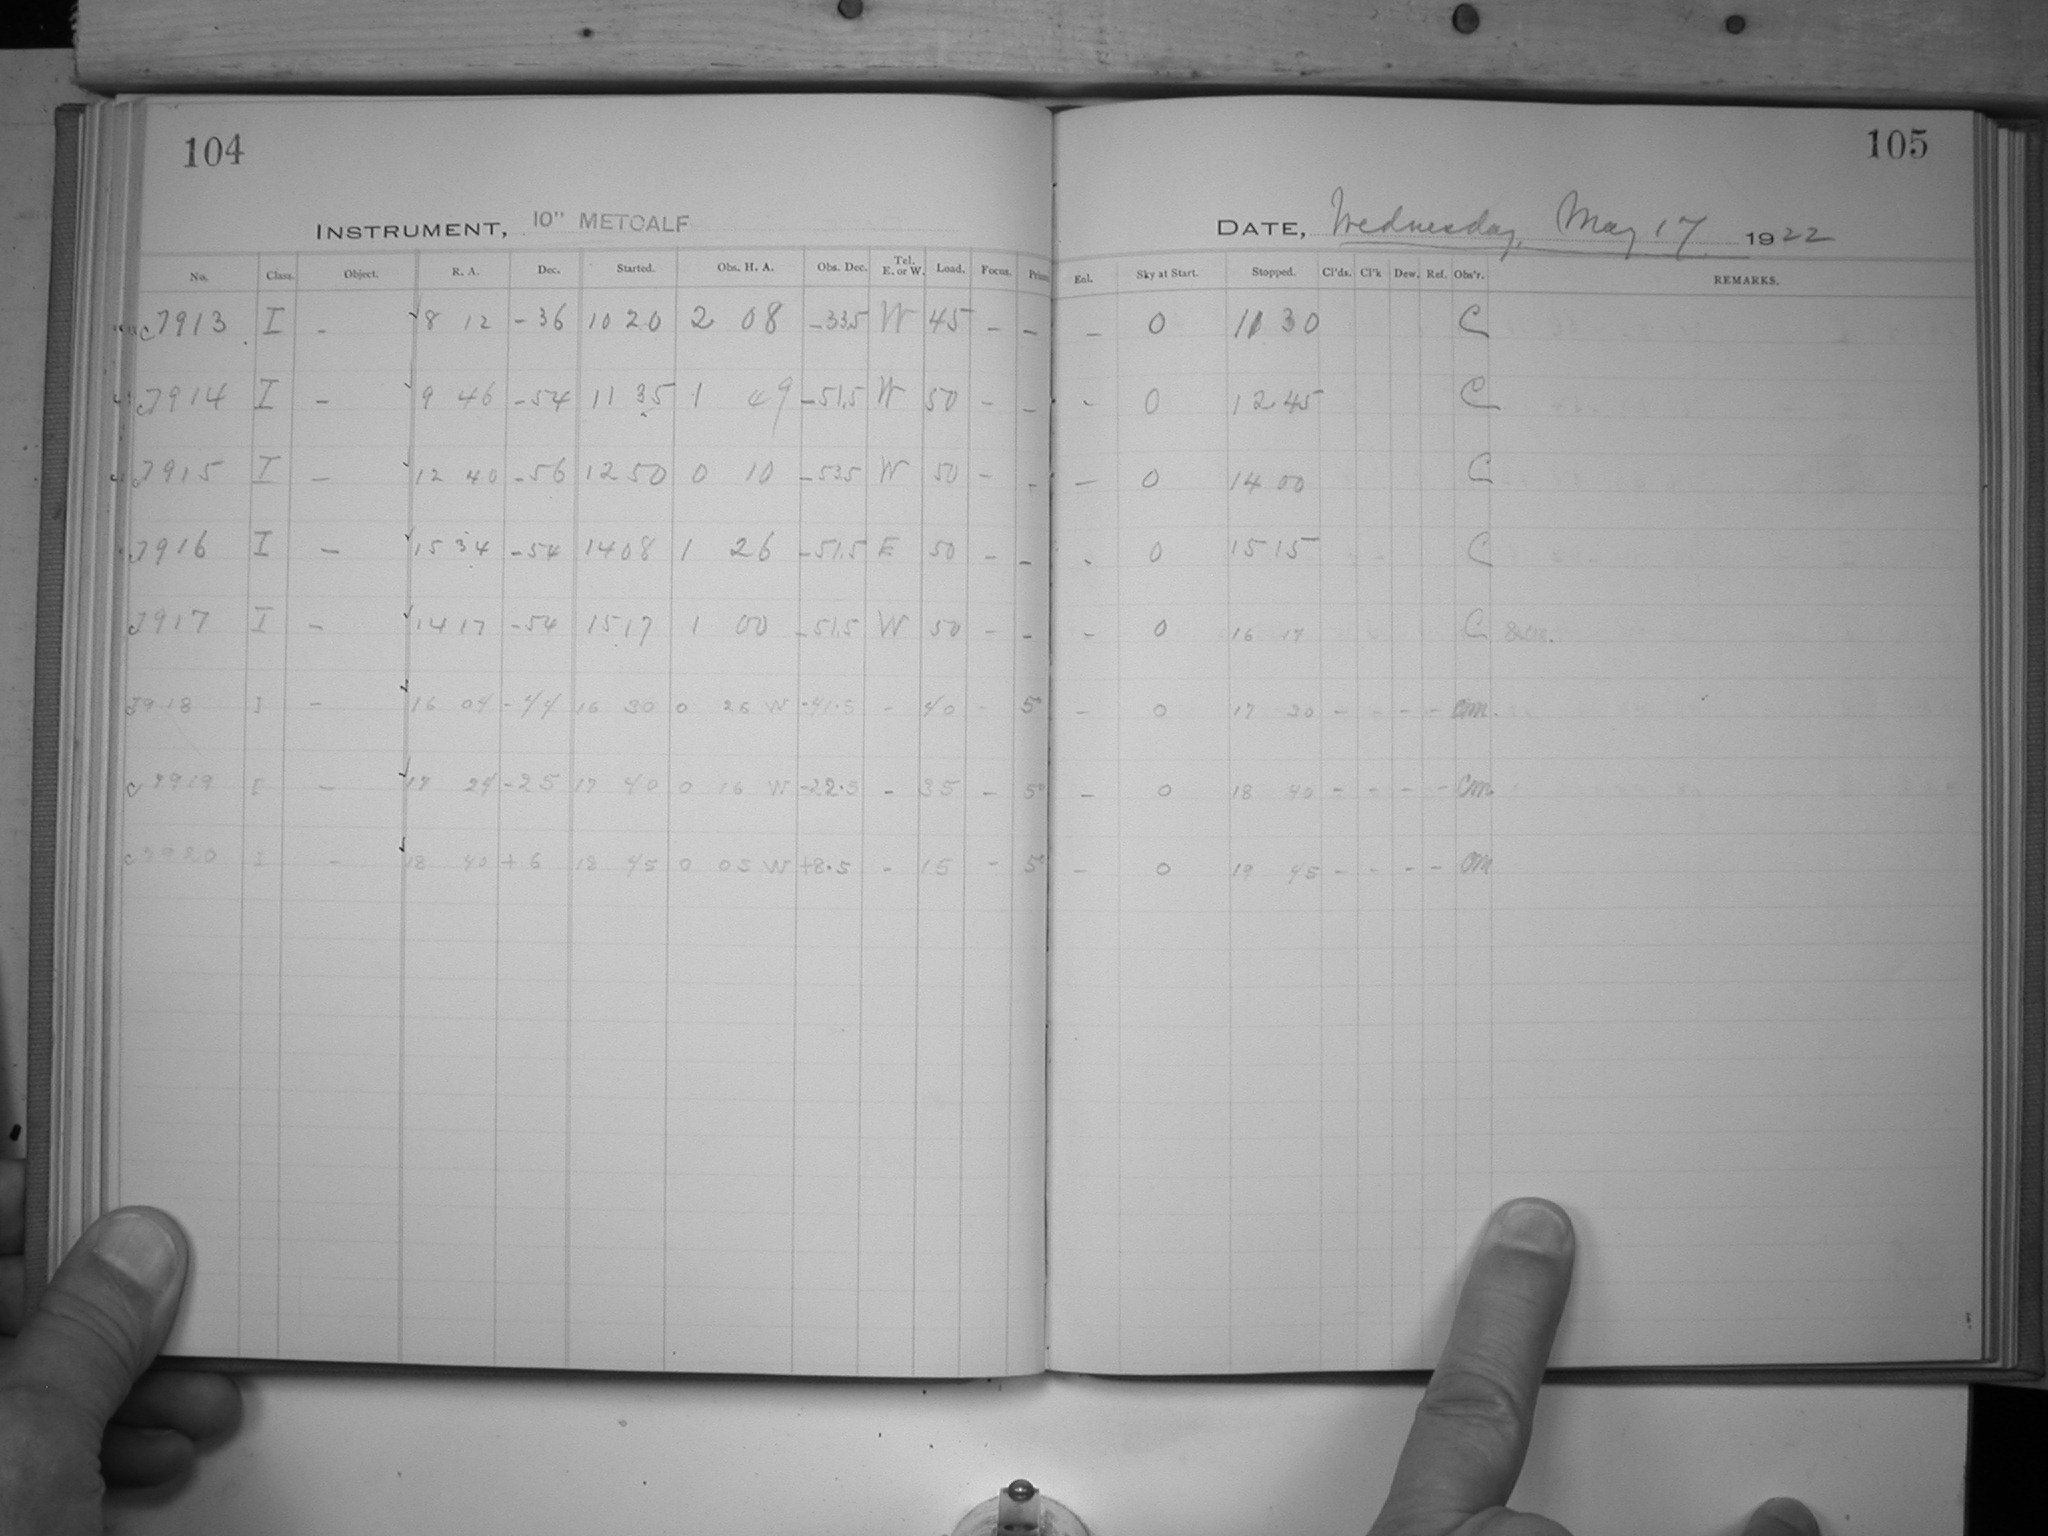 104
105
INSTRUMENT, 10" METCALF
DATE, Wednesday, May 17 1922
No. Class. Object. R. A. Dec. Started. Obs. H. A. Obs. Dec. Tel. E. or W. Load. Focus. Prism Enl. Sky at Start. Stopped. Cl'ds. Cl'k Dew. Ref. Obs'r. REMARKS.
7913 I - 8 12 -36 10 20 2 08 -33.5 W 45 - - - 0 11 30 C
7914 I - 9 46 -54 11 35 1 49 -51.5 W 50 - - - 0 12 45 C
7915 I - 12 40 -56 12 50 0 10 -53.5 W 50 - - - 0 14 00 C
7916 I - 15 34 -54 14 08 1 26 -51.5 E 50 - - - 0 15 15 C
7917 I - 14 17 -54 15 17 1 00 -51.5 W 50 - - - 0 16 17 C
7918 I - 16 04 -44 16 30 0 26 W -41.5 - 40 - 5° - 0 17 30 - - - - CM.
7919 I - 17 24 -25 17 40 0 16 W -22.5 - 35 - 5° - 0 18 40 - - - - CM.
7920 I - 18 40 +6 18 45 0 05 W +8.5 - 15 - 5° - 0 19 45 - - - - CM